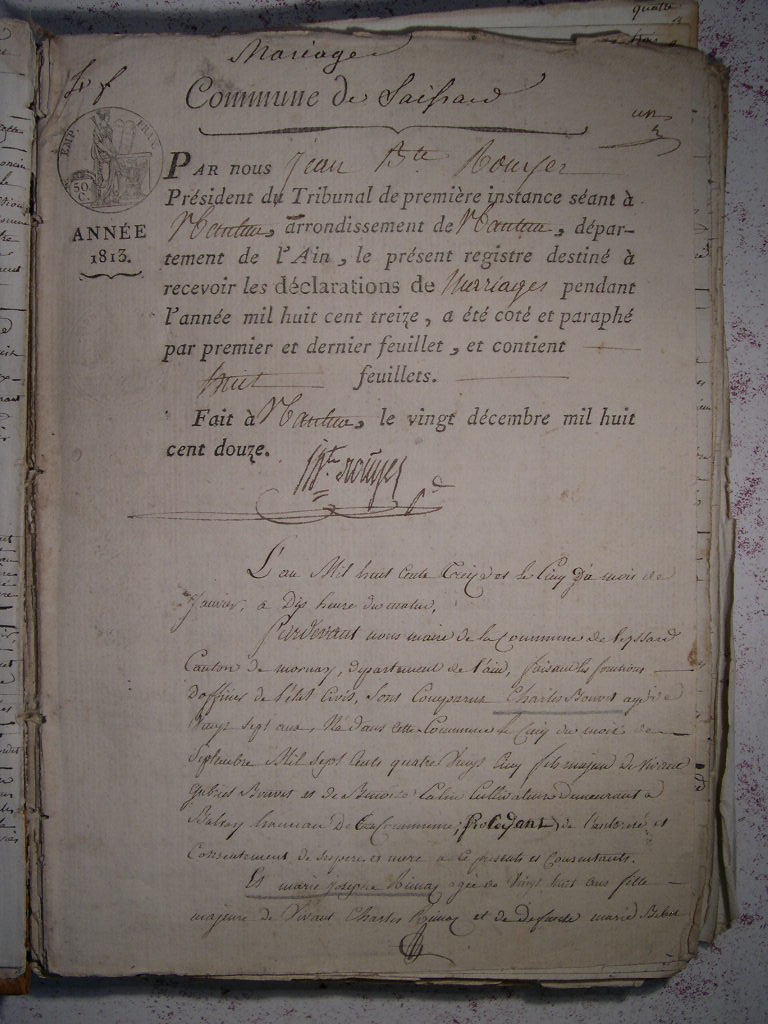 quatre
Mariage
Commune de Saissard
un
EMP. FRAN.
50 C.
ANNÉE
1813.
PAR nous Jean Bte Rouyer
Président du Tribunal de première instance séant à
Nantua, arrondissement de Nantua, dépar-
tement de l'Ain, le présent registre destiné à
recevoir les déclarations de Marriages pendant
l'année mil huit cent treize, a été coté et paraphé
par premier et dernier feuillet, et contient
huit feuillets.
Fait à Nantua, le vingt décembre mil huit
cent douze.
Bte Rouyer
L'an Mil huit Cents Treize et le Cinq du mois de
Janvier, a Dix heure du matin,
Pardevant nous maire de la Commune de Leyssard
Canton de mornay, departement de l'ain, faisant les fonctions
D'officier de l'état Civil, sont Comparus Charles Bouvet agé de
Vingt sept ans, Né dans cette Commune le Cinq du mois de
Septembre Mil Sept Cents quatre Vingt Cinq fils majeur de vivant
gabriel Bouvet et de Benoite Cultivateurs Demeurant a
Balvay hameau De la Commune, procedant de l'autorité et
Consentement de ses pere et mere a ce presents et Consentants.
Et marie Josephe agée de Vingt huit ans fille
majeure de Vivant Charles et de Defunte marie